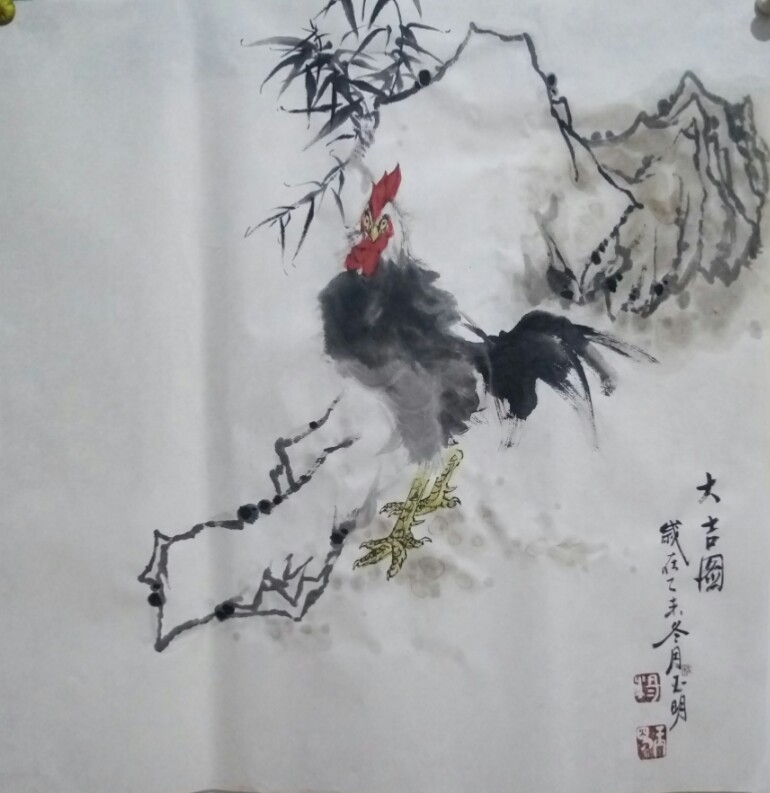 大吉圖
歲在乙未冬月玉明